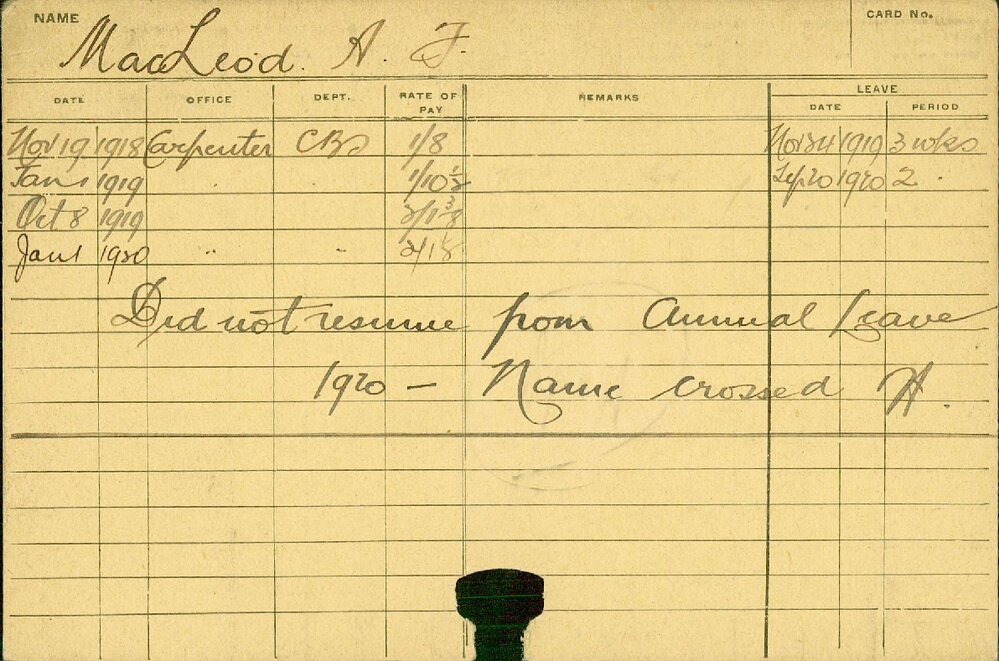 NAME CARD No.
MacLeod. A. F.
LEAVE
DATE OFFICE DEPT. RATE OF PAY REMARKS DATE PERIOD
Nov 19 1918 Carpenter 1/8 Nov 24 1919 3 wks
Jan 1 1919 " " 1/10½ Sep 20 1920 2 "
Oct 8 1919 " " 2/1⅜
Jan 1 1920 " " 2/1⅛
Did not resume from Annual Leave
1920 — Name crossed